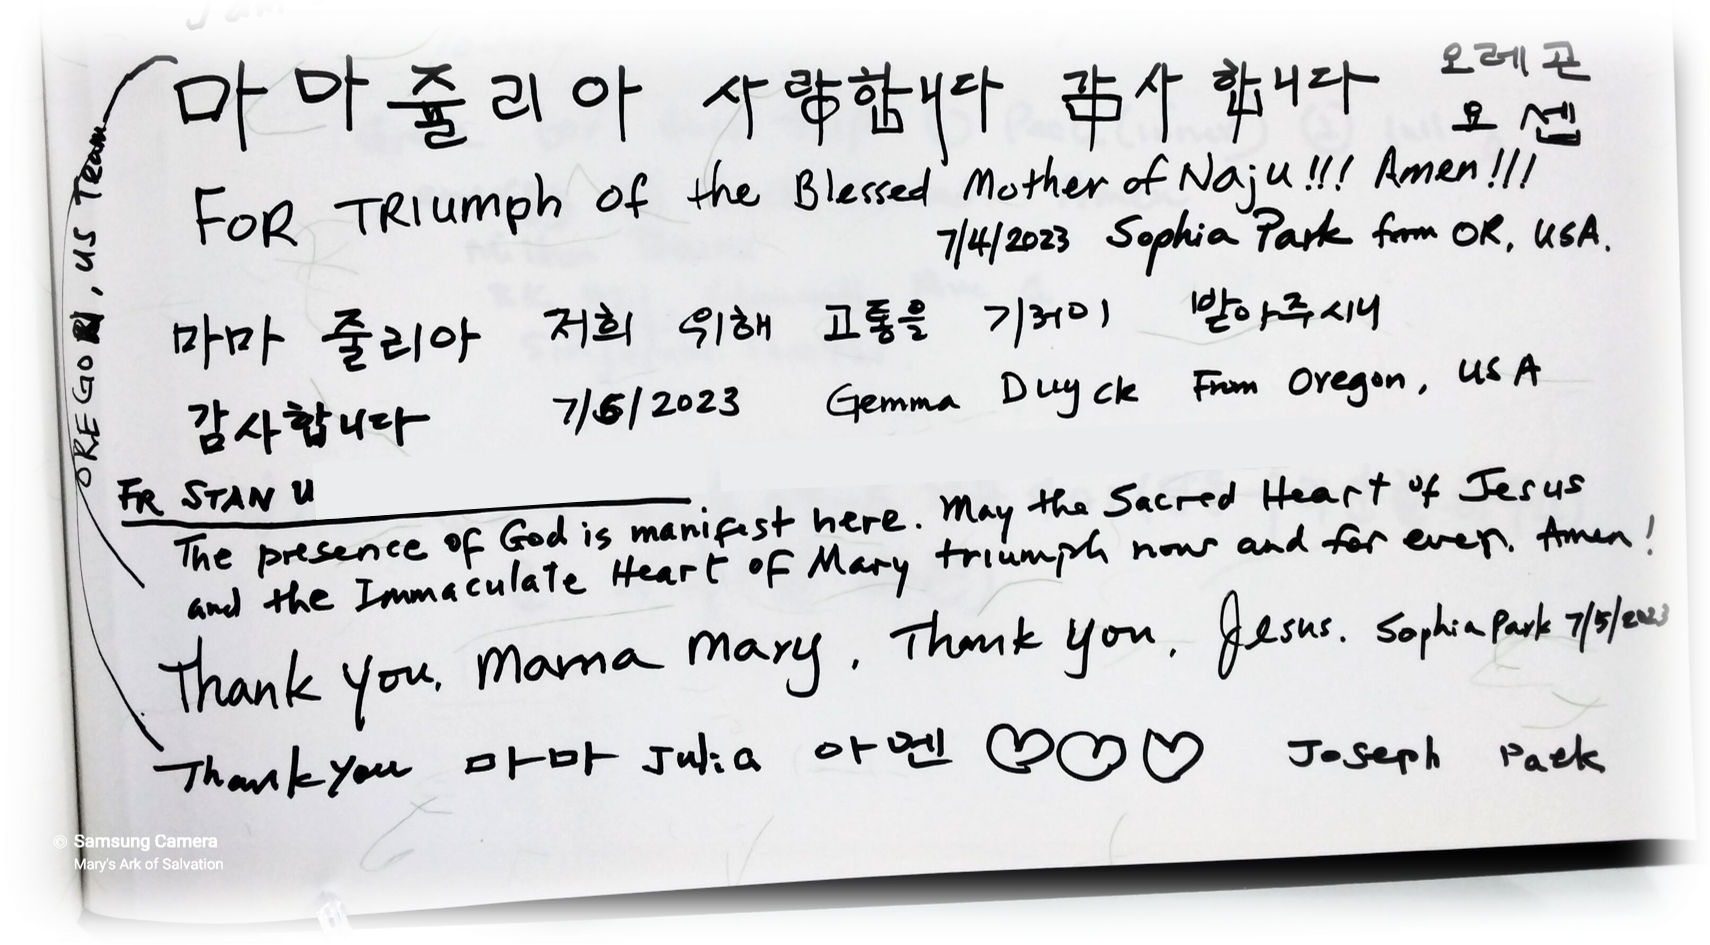 마마쥴리아 사랑합니다 감사합니다 오레곤
요셉
FOR TRIumph of the Blessed Mother of Naju!!! Amen!!!
7/4/2023 Sophia Park from OR, USA.
마마 줄리아 저희 위해 고통을 기꺼이 받아주시니
감사합니다 7/5/2023 Gemma Duyck From Oregon, USA
OREGON, US Team
FR STAN U
The presence of God is manifest here. May the Sacred Heart of Jesus
and the Immaculate Heart of Mary triumph now and for ever. Amen!
Thank you, Mama Mary, Thank you, Jesus. Sophia Park 7/5/2023
Thank you 마마 Julia 아멘 Joseph Paek
Samsung Camera
Mary's Ark of Salvation